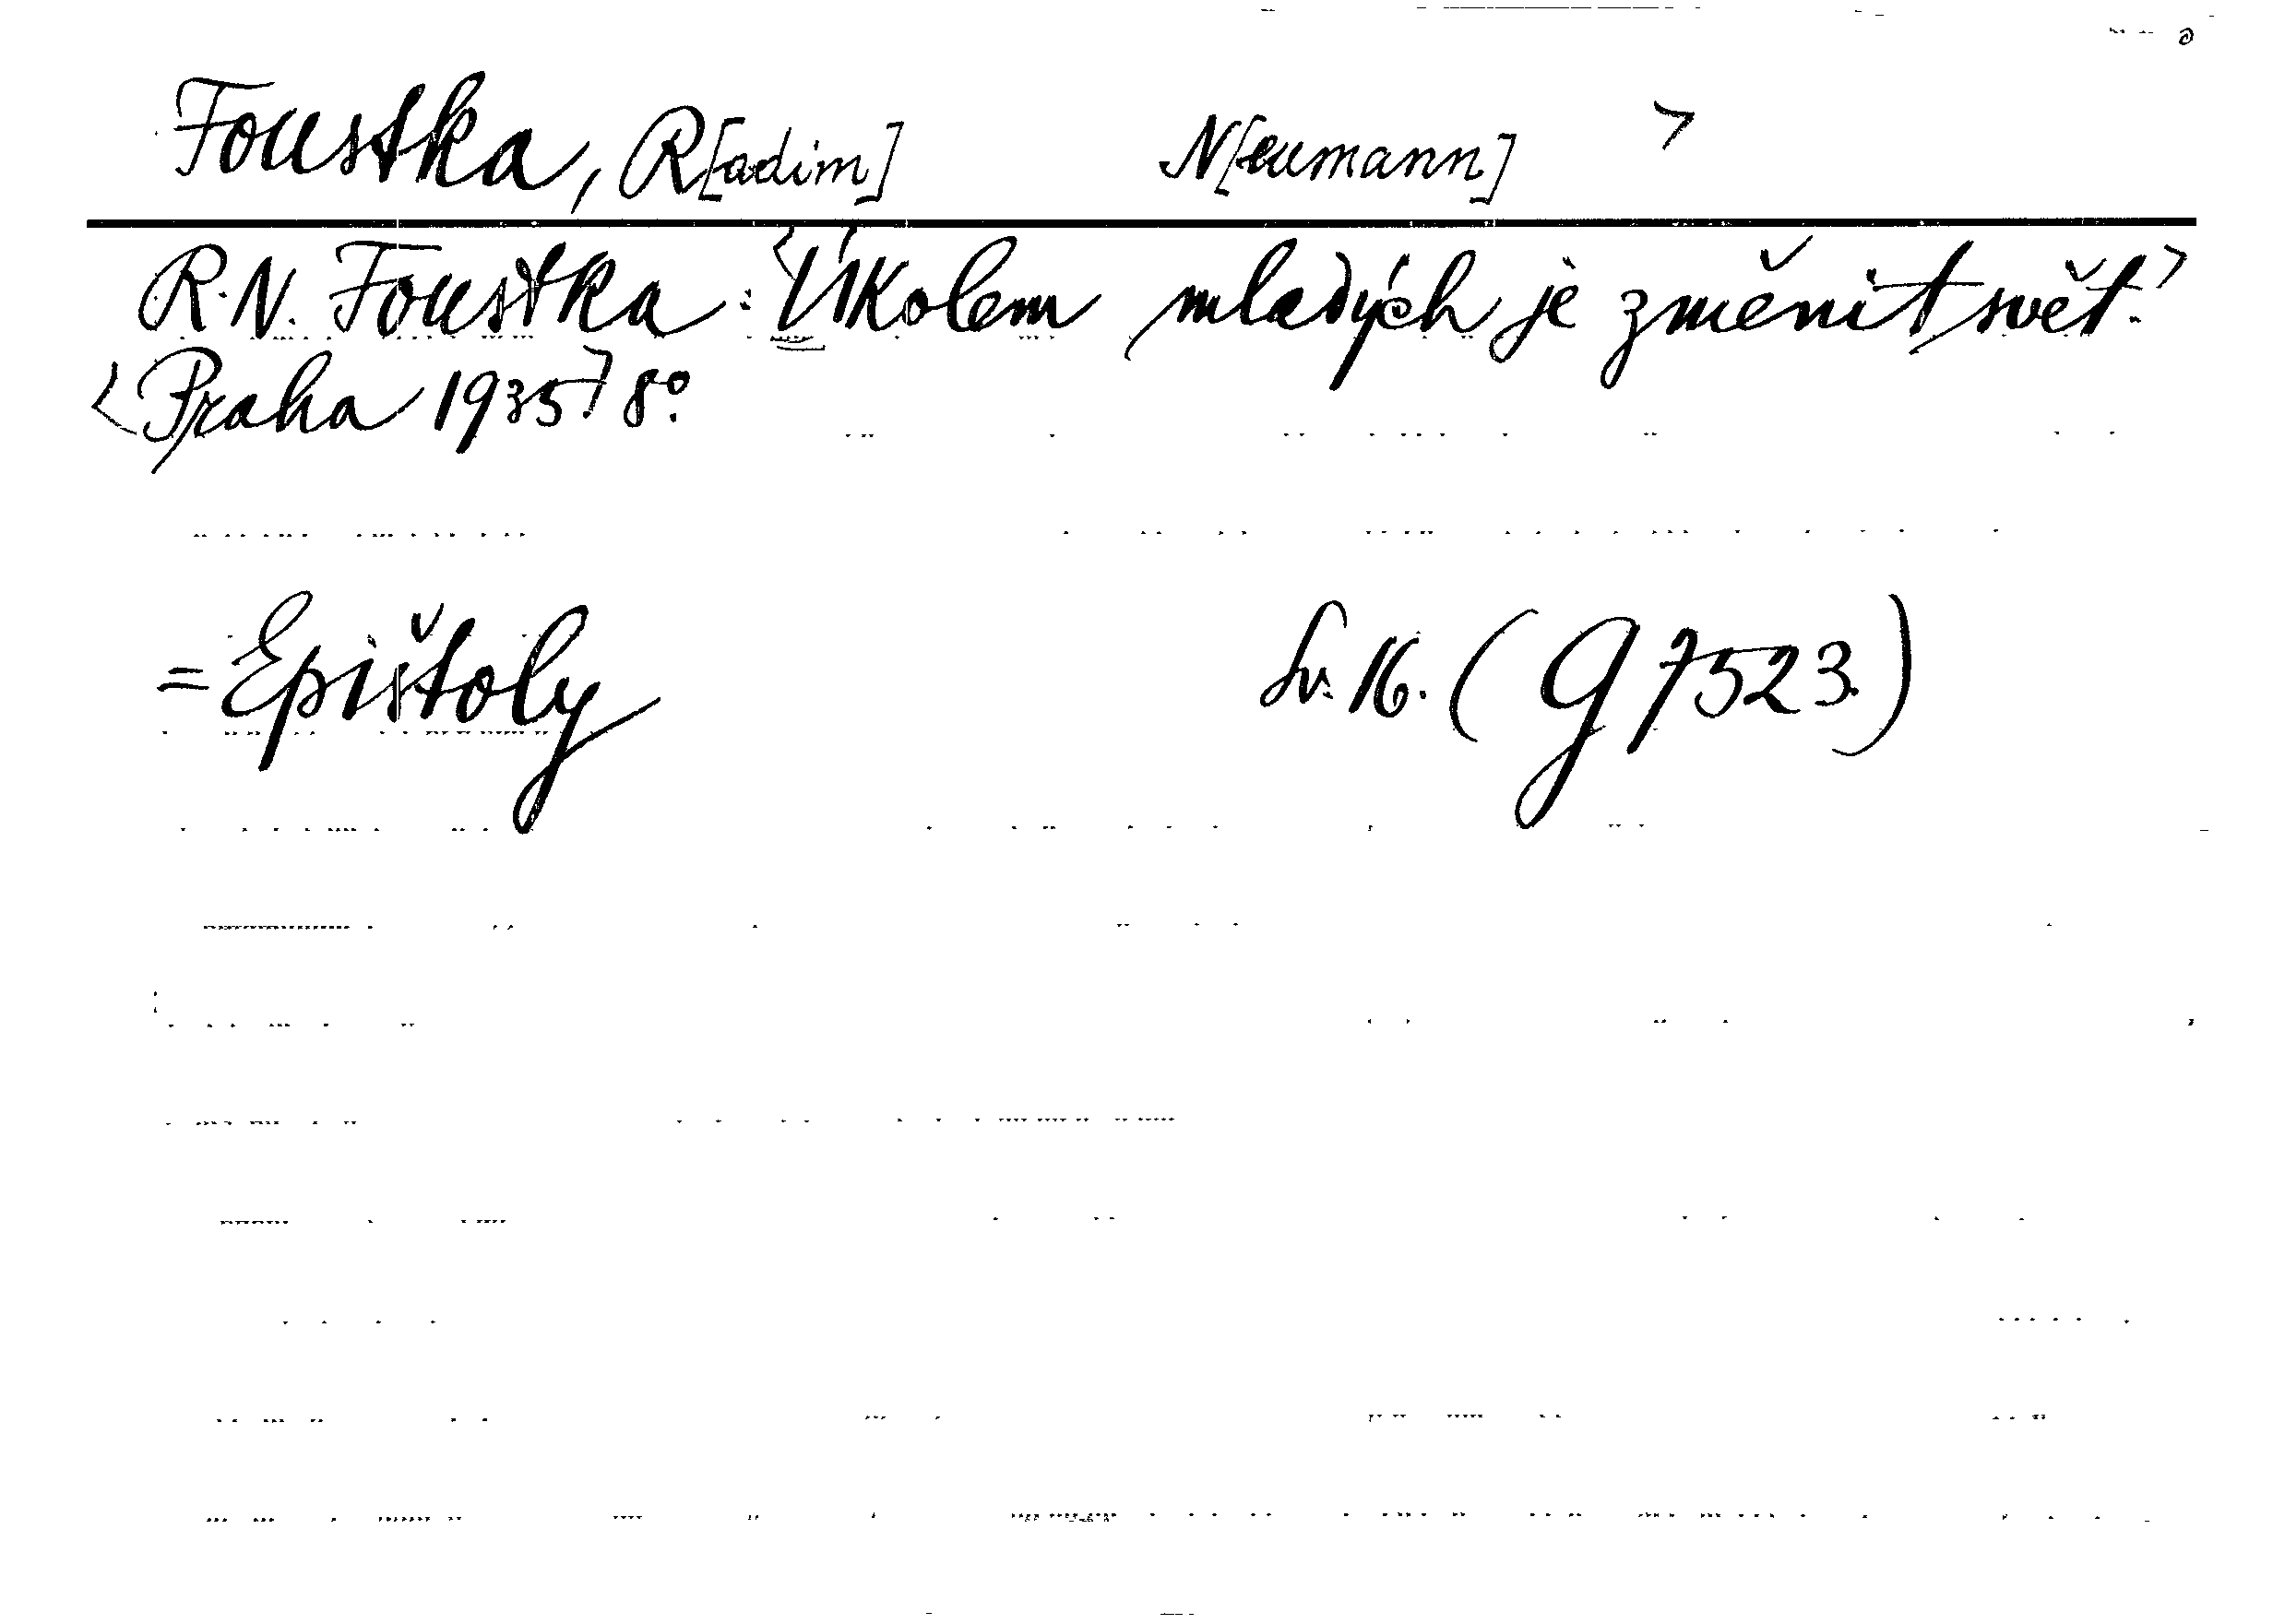 Foustka, R[adim] N[eumann] >
R. N. Foustka: <Úkolem mladých je změnit svět.>
<Praha 1935.> 8°.
= Epištoly Sv. 16. (G 7523.)